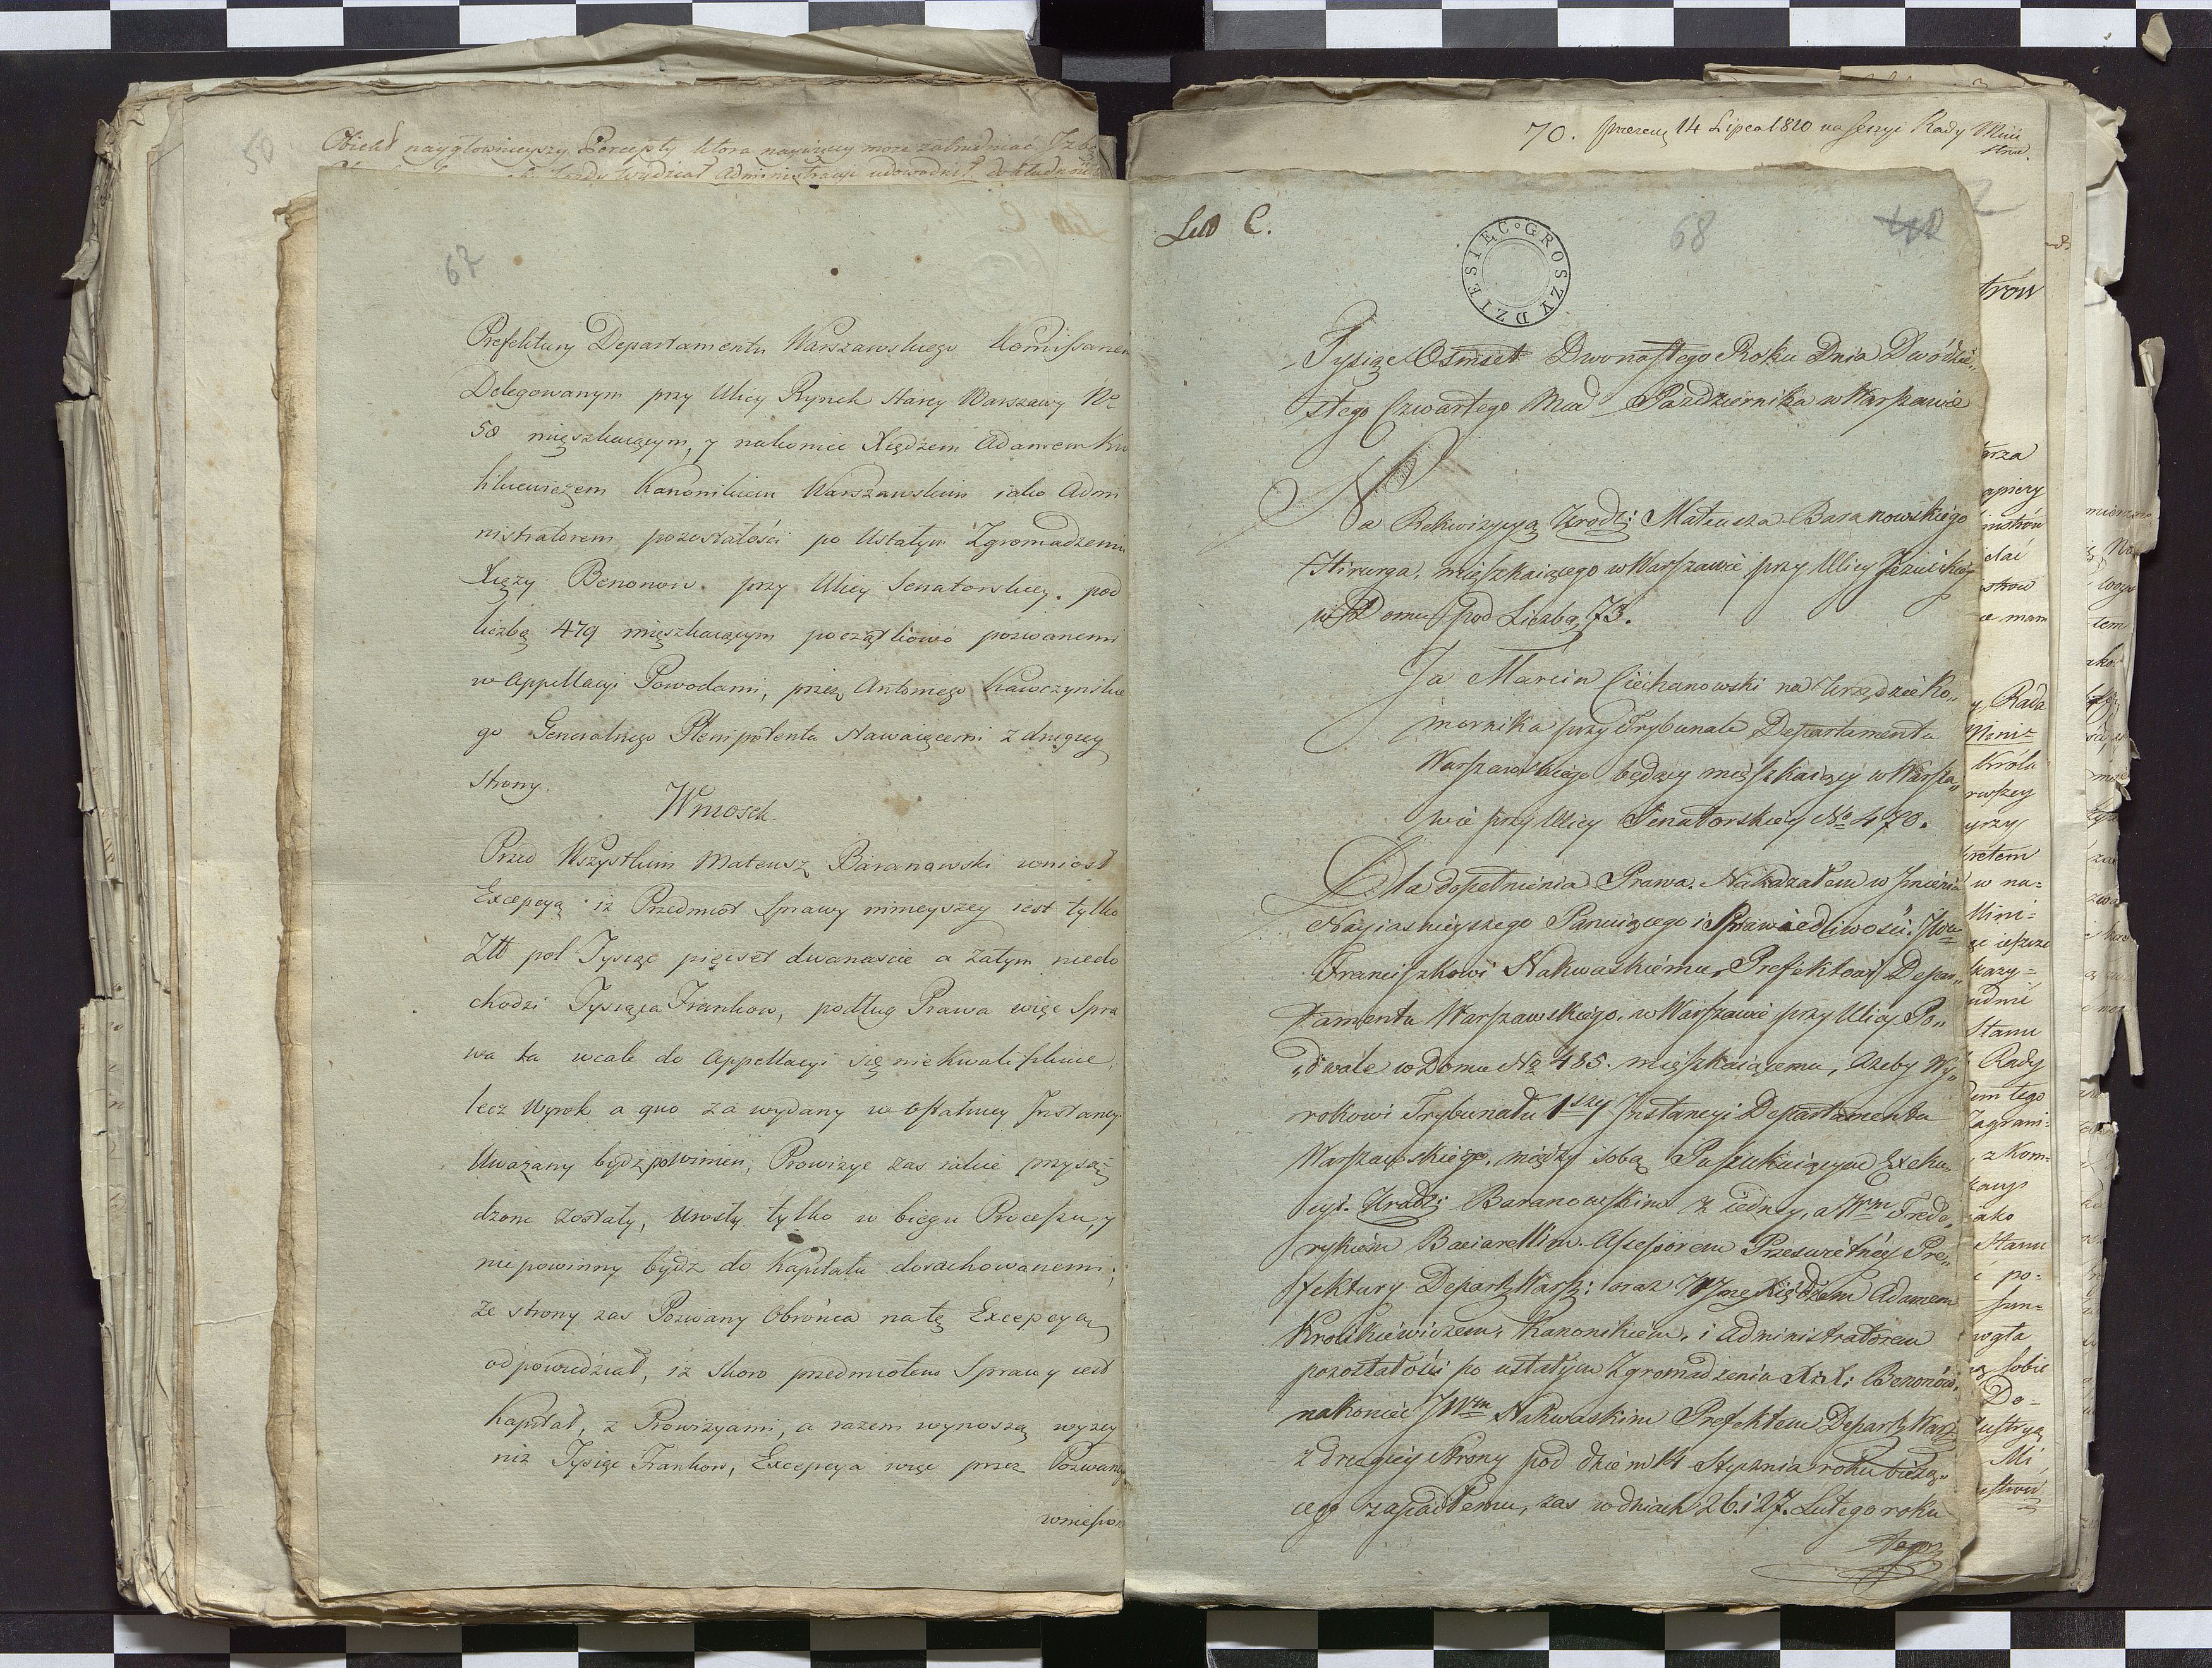 50
Obiekt naygłównieyszy Percepty która naywięcey może zatrudniać Izbę
Wydział Administracyi udowodnił dokładnie
67
Prefektury Departamentu Warszawskiego Komissarzem
Delegowanym przy Ulicy Rynek Starey Warszawy No
58 mięszkaiącym, y nakoniec Xiędzem Adamem Kro
likiewiczem Kanonikiem Warszawskim iako Admi
nistratorem pozostałości po Ustałym Zgromadzeniu
Xięży Benonow przy Ulicy Senatorskiey pod
liczbą 479 mięszkaiącym początkowo pozwanemi
w Appellacyi Powodami, przez Antoniego Krawczyńskie
go Generalnego Plenipotenta Stawaiącemi z drugiey
Strony.
Wniosek.
Przed Wszystkim Mateusz Baranowski wniosł
Excepcyą iż Przedmiot Sprawy ninieyszey iest tylko
Złł pol Tysiąc pięćset dwanaście a zatym niedo
chodzi Tysiąca Frankow, podług Prawa więc Spra
wa ta wcale do Appellacyi się niekwalifikuie,
lecz Wyrok a quo za wydany w ostatniey Instancyi
Uważany bydź powinien; Prowizye zaś iakie przysą
dzone zostały, Urosły tylko w biegu Processu, y
niepowinny bydź do Kapitału dorachowanemi;
ze strony zaś Pozwany Obrońca na tę Excepcyą
odpowiedział, iż skoro przedmiotem Sprawy iest
Kapitał, z Prowizyami, a razem wynoszą wyżey
niż Tysiąc Frankow, Excepcya więc przez Pozwany
wniesion
70. prezen: 14 Lipca 1810 na Sessyi Rady Mini
strów.
Litt C.
DZIESIĘĆ GROSZY
68
Tysiąc Osmset Dwonastego Roku Dnia Dwódzie„
stego Czwartego Mca Października w Warszawie
Na Rekwizycyą Urodz: Mateusza Baranowskiego
Hirurga, mięszkaiącego w Warszawie przy Ulicy Jezuickiey
w Domu pod Liczbą 73.
Ja Marcin Ciechanowski na Urzędzie Ko„
mornika przy Trybunale Departamentu
Warszawskiego będący mięszkaiący w Warsza„
wie przy Ulicy Senatorskiey No 470.
Dla dopełnienia Prawa. Nakazałem w Jmieniu
Nayiasnieyszego Panuiącego i Sprawiedliwości. JWu
Franciszkowi Nakwaskiemu, Prefektowi Depar„
tamentu Warszawskiego, w Warszawie przy Ulicy Po„
„dwale w Domu No 485. mięszkaiącemu, ażeby Wy„
rokowi Trybunału 1szey Instancyi Departamentu
Warszawskiego, między sobą Poszukuiącym Exeku„
cyi. Urodz: Baranowskim z iedney, a Wym Frede„
rykiem Baciarellim Assessorem Prześwietney Pre„
fektury Depart: Warsz: oraz WJmc Xiędzem Adamem
Krolikiewiczem, Kanonikiem, i Administratorem
pozostałości po ustałym Zgromadzeniu XX: Benonów,
nakoniec JWm Nakwaskim Prefektem Depart: Warsz:
z drugiey strony pod dniem 14 Stycznia roku bieżą„
cego zapadłemu, zas w dniach 26. i 27. Lutego roku
tegoż
trów
arza
apiery
Rada
Mini=
Króla
rwszey
w na=
Mini=
Stanu
Rady
tego
Zagrani=
z Kom=
iako
Stanu
po=
fun=
sobie
Do=